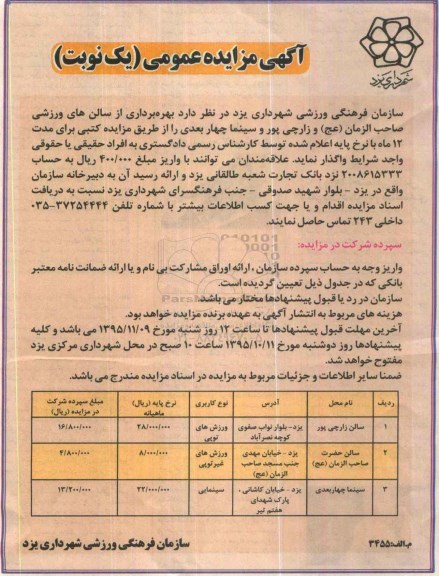 شهرداری یزد
آگهی مزایده عمومی (یک نوبت)
سازمان فرهنگی ورزشی شهرداری یزد در نظر دارد بهره‌برداری از سالن های ورزشی
صاحب الزمان (عج) و زارچی پور و سینما چهار بعدی را از طریق مزایده کتبی برای مدت
۱۲ ماه با نرخ پایه اعلام شده توسط کارشناس رسمی دادگستری به افراد حقیقی یا حقوقی
واجد شرایط واگذار نماید. علاقه‌مندان می توانند با واریز مبلغ ۴۰۰/۰۰۰ ریال به حساب
۲۰۰۸۶۱۵۳۳۳ نزد بانک تجارت شعبه طالقانی یزد و ارائه رسید آن به دبیرخانه سازمان
واقع در یزد - بلوار شهید صدوقی - جنب فرهنگسرای شهرداری یزد نسبت به دریافت
اسناد مزایده اقدام و یا جهت کسب اطلاعات بیشتر با شماره تلفن ۳۷۲۵۴۴۴۴-۰۳۵
داخلی ۲۴۳ تماس حاصل نمایند.
سپرده شرکت در مزایده:
واریز وجه به حساب سپرده سازمان ، ارائه اوراق مشارکت بی نام و یا ارائه ضمانت نامه معتبر
بانکی که در جدول ذیل تعیین گردیده است.
سازمان در رد یا قبول پیشنهادها مختار می باشد
هزینه های مربوط به انتشار آگهی به عهده برنده مزایده خواهد بود.
آخرین مهلت قبول پیشنهادها تا ساعت ۱۲ روز شنبه مورخ ۱۳۹۵/۱۱/۰۹ می باشد و کلیه
پیشنهادها روز دوشنبه مورخ ۱۳۹۵/۱۰/۱۱ ساعت ۱۰ صبح در محل شهرداری مرکزی یزد
مفتوح خواهد شد.
ضمنا سایر اطلاعات و جزئیات مربوط به مزایده در اسناد مزایده مندرج می باشد.
ردیف نام محل آدرس نوع کاربری نرخ پایه (ریال) ماهیانه مبلغ سپرده شرکت در مزایده (ریال)
۱ سالن زارچی پور یزد- بلوار نواب صفوی کوچه نصرآباد ورزش های توپی ۲۸/۰۰۰/۰۰۰ ۱۶/۸۰۰/۰۰۰
۲ سالن حضرت صاحب الزمان (عج) یزد - خیابان مهدی جنب مسجد صاحب الزمان (عج) ورزش های غیرتوپی ۸/۰۰۰/۰۰۰ ۴/۸۰۰/۰۰۰
۳ سینما چهاربعدی یزد - خیابان کاشانی ، پارک شهدای هفتم تیر سینمایی ۲۲/۰۰۰/۰۰۰ ۱۳/۲۰۰/۰۰۰
م.الف: ۳۴۵۵
سازمان فرهنگی ورزشی شهرداری یزد